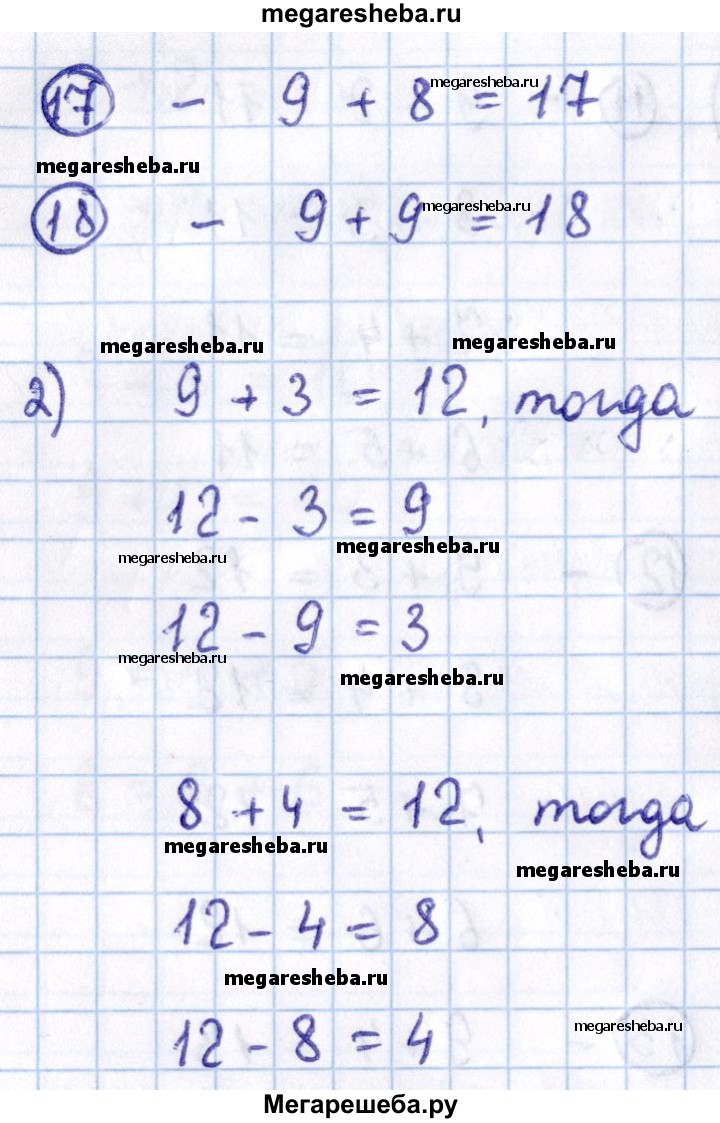 megaresheba.ru
17 - 9 + 8 = 17
megaresheba.ru
megaresheba.ru
18 - 9 + 9 = 18
megaresheba.ru
megaresheba.ru
megaresheba.ru
2) 9 + 3 = 12, тогда
12 - 3 = 9
megaresheba.ru
megaresheba.ru
12 - 9 = 3
megaresheba.ru
megaresheba.ru
8 + 4 = 12, тогда
megaresheba.ru
megaresheba.ru
12 - 4 = 8
megaresheba.ru
megaresheba.ru
12 - 8 = 4
Мегарешеба.ру